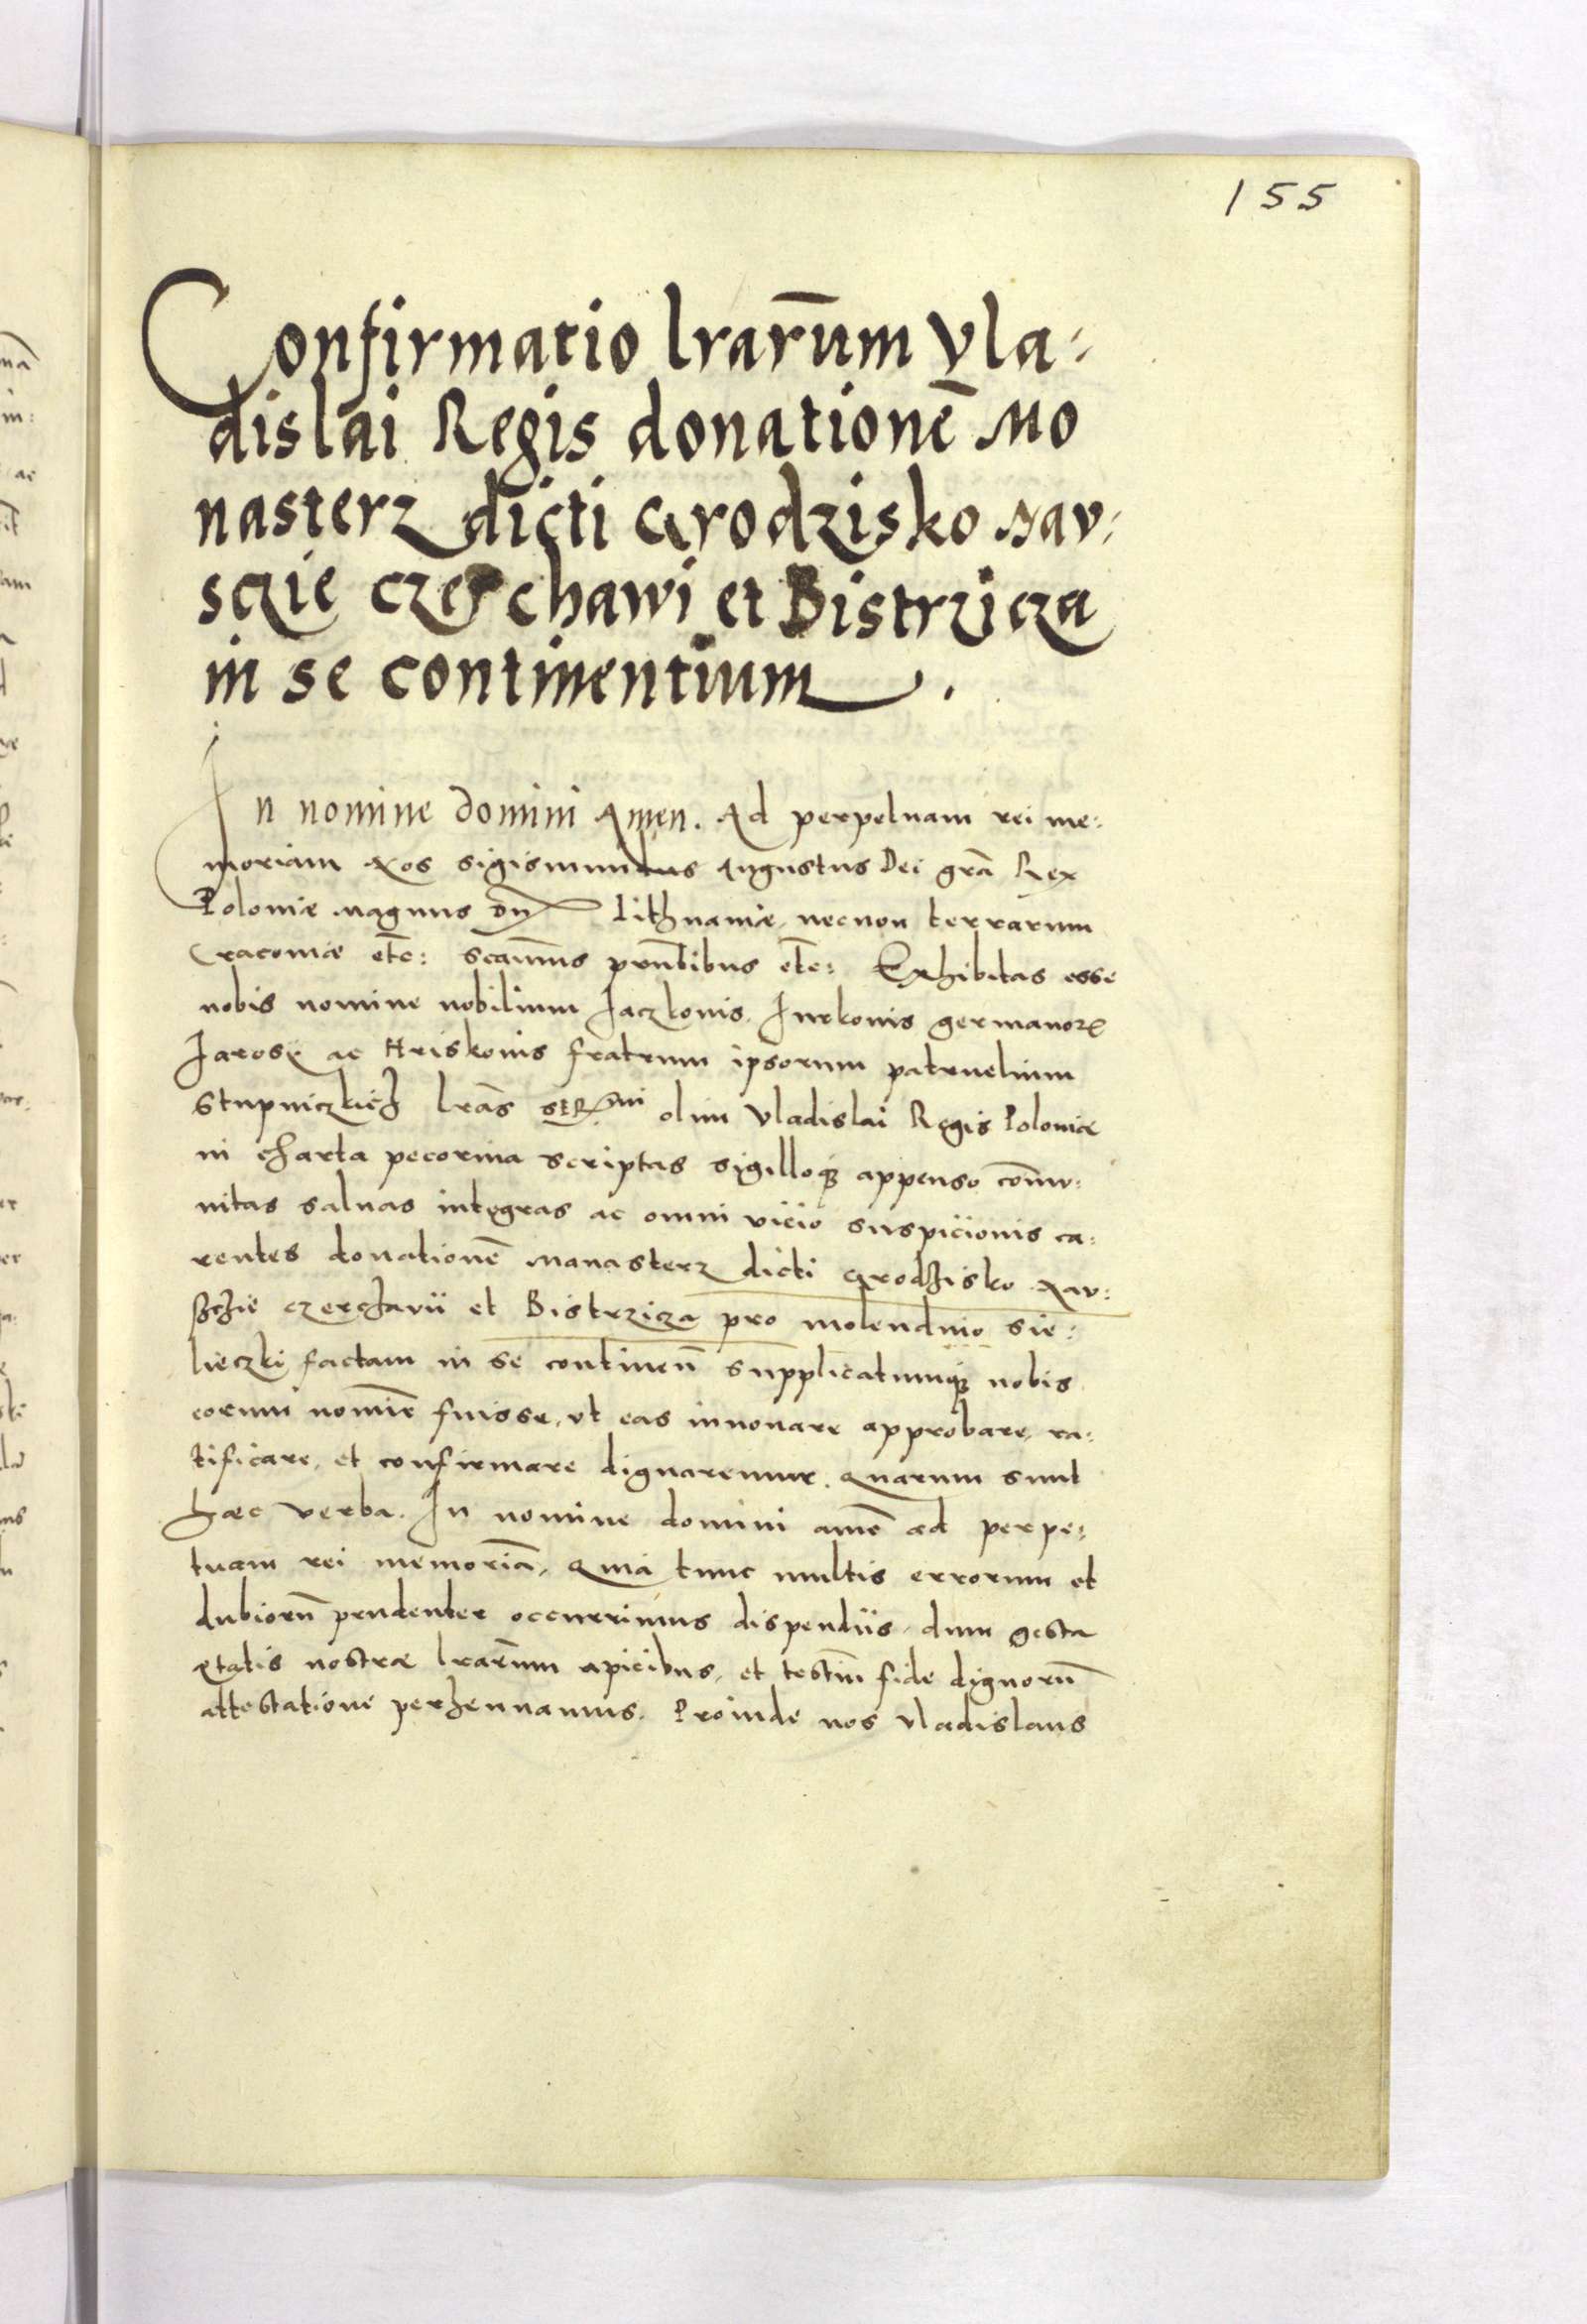 155
Confirmatio lrarūm Vla-
dislai Regis donationē Mo
nasterz dicti Grodzisko Nav-
sczie czerchawi et Bistrzicza
in se continentium.
In nomine Domini Amen. Ad perpetuam rei me-
moriam Nos Sigismundus Augustus Dei grā Rex
Poloniæ Magnus Dux Lithuaniæ, necnon terrarum
Cracoviæ etc: Scaimus pruntibus etc: Exhibitas esse
nobis nomine nobilium Jaczkonis, Jurkonis germanorum
Jarosz ac Hriskonis fratrum ipsorum patruelium
Stupniczkich lrās Sermi olim Vladislai Regis Poloniæ
in charta pecorina scriptas sigilloque appenso commu-
nitas salvas integras ac omni vicio suspicionis ca-
rentes donationē Manasterz dicti Grodzisko Nav-
sczie czerchavii et Bistrzicza pro molendino Sie-
lieczki factam in se continen̄ Supplicatumque nobis
eorum nomīe fuisse, ut eas innovare approbare, ra-
tificare, et confirmare dignaremur. Quarum sunt
hæc verba. In nomine domini amē ad perpe-
tuam rei memoriā, Quia tunc multis errorum et
dubiorū prudenter occurrimus dispendiis, dum gesta
ætatis nostræ lrarūm apicibus, et testiū fide dignorū
attestatione perhennamus. Proinde nos Vladislaus